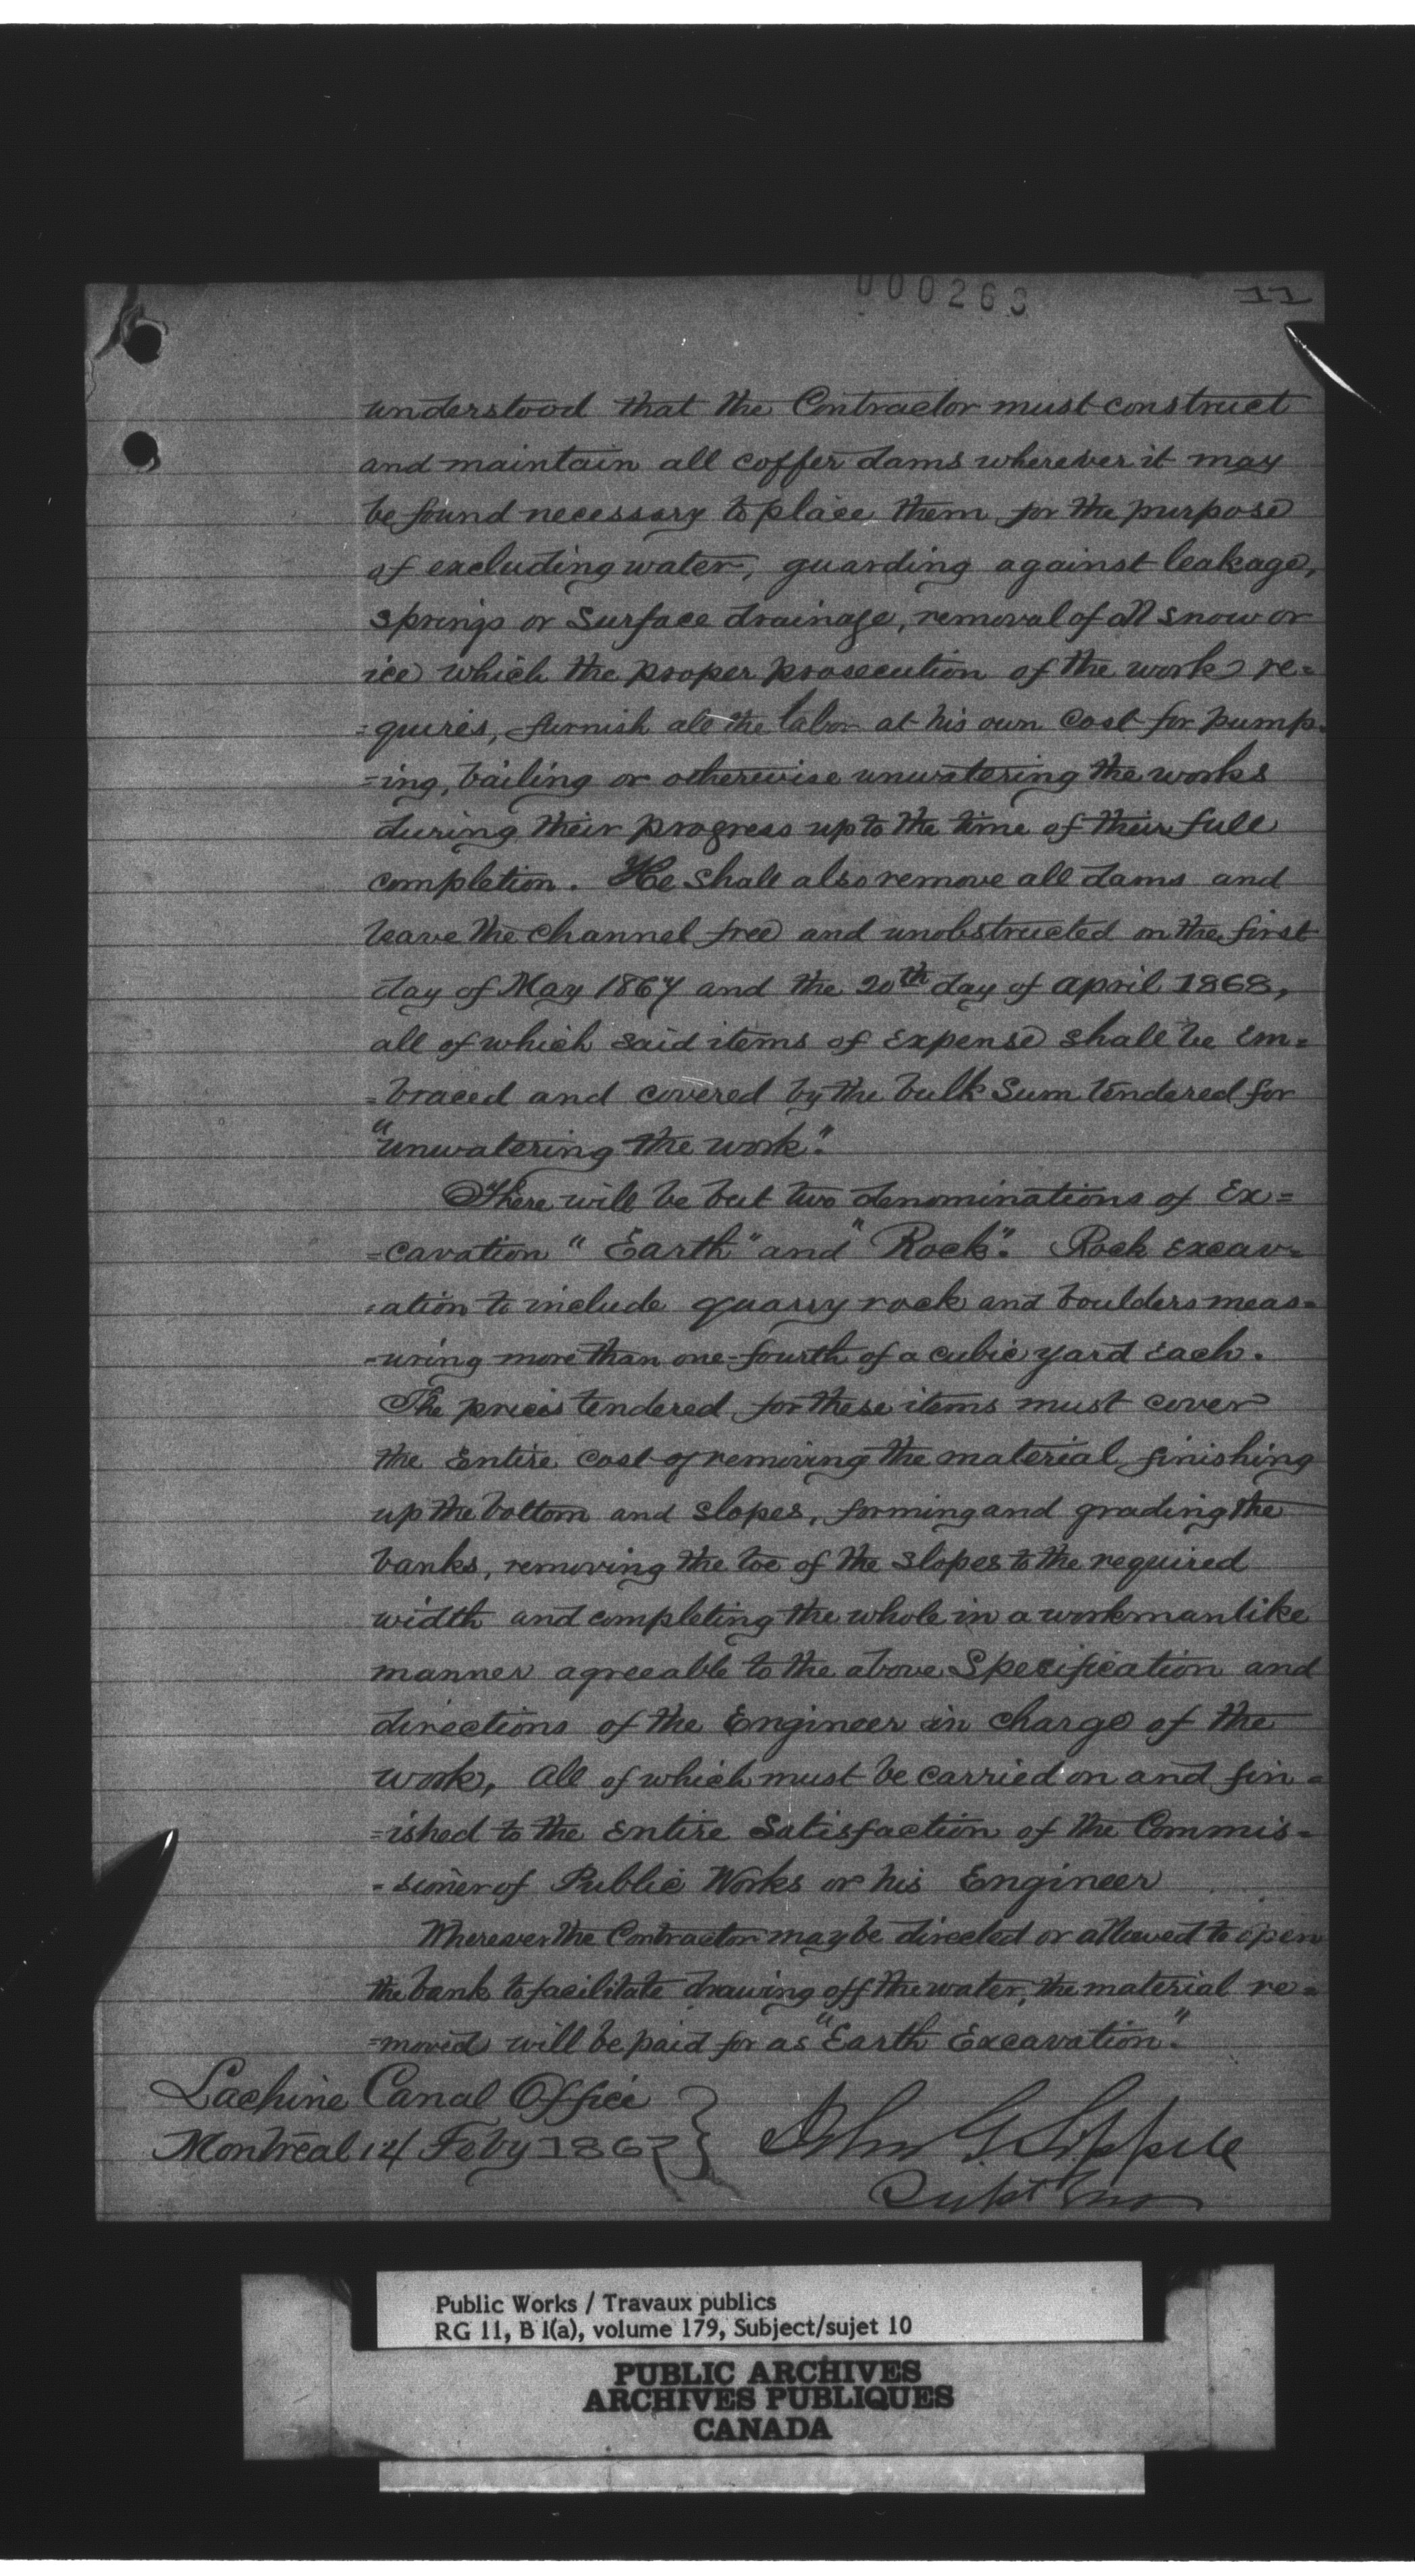 000263
11
understood that the Contractor must construct
and maintain all coffer dams wherever it may
be found necessary to place them for the purpose
of excluding water, guarding against leakage,
springs or surface drainage, removal of all snow or
ice which the proper prosecution of the work re=
=quires, furnish all the labor at his own cost for pump=
=ing, bailing or otherwise unwatering the works
during their progress up to the time of their full
completion. He shall also remove all dams and
leave the channel free and unobstructed on the first
day of May 1867 and the 20th day of april 1868,
all of which said items of expense shall be em=
=braced and covered by the bulk sum tendered for
"unwatering the work".
There will be but two denominations of Ex=
=cavation "Earth" and "Rock". Rock excav=
=ation to include quarry rock and boulders meas=
=uring more than one-fourth of a cubic yard each.
The prices tendered for these items must cover
the entire cost of removing the material, finishing
up the bottom and slopes, forming and grading the
banks, removing the toe of the slopes to the required
width and completing the whole in a workmanlike
manner agreeable to the above Specification and
directions of the Engineer in charge of the
work, all of which must be carried on and fin=
=ished to the entire satisfaction of the Commis=
=sioner of Public Works or his Engineer
Wherever the Contractor may be directed or allowed to open
the bank to facilitate drawing off the water, the material re=
=moved will be paid for as "Earth Excavation".
Lachine Canal Office
Montreal 14 Feby 1867
John G Sippell
Supt Eng
Public Works / Travaux publics
RG 11, B 1(a), volume 179, Subject/sujet 10
PUBLIC ARCHIVES
ARCHIVES PUBLIQUES
CANADA